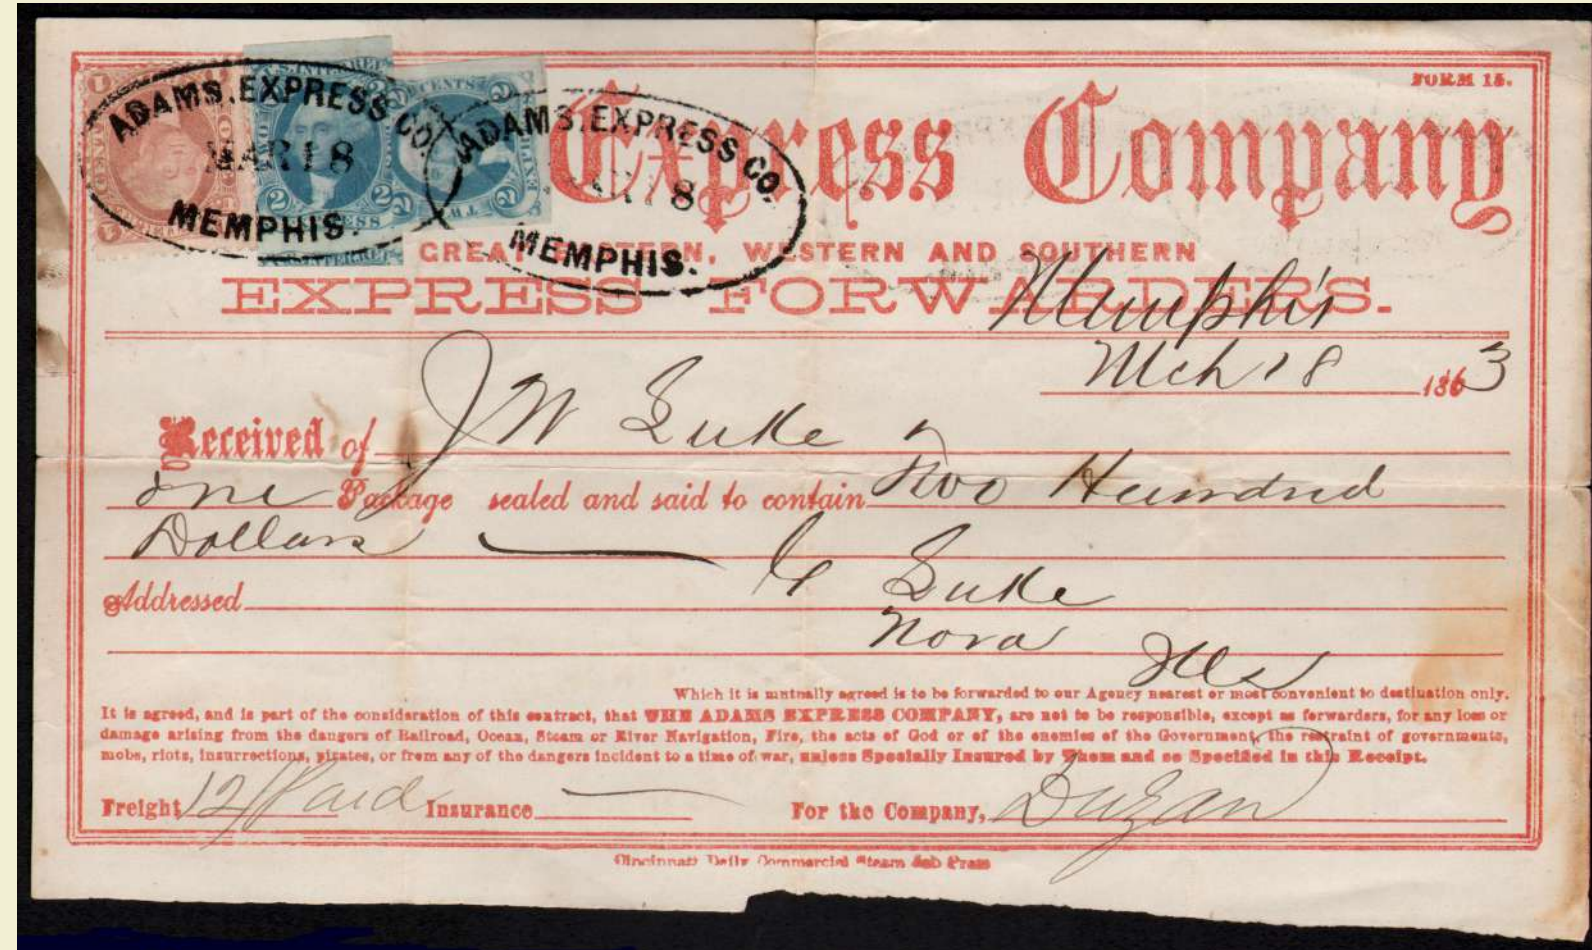 FORM 15.
Express Company
GREAT EASTERN, WESTERN AND SOUTHERN
EXPRESS FORWARDERS.
ADAMS.EXPRESS CO.
MAR 18
MEMPHIS.
ADAMS.EXPRESS CO.
18
MEMPHIS.
Memphis
Mch 18 1863
Received of J W Luke
one Package sealed and said to contain Two Hundred
Dollars
Addressed C Luke
Nora Ills
Which it is mutually agreed is to be forwarded to our Agency nearest or most convenient to destination only.
It is agreed, and is part of the consideration of this contract, that THE ADAMS EXPRESS COMPANY, are not to be responsible, except as forwarders, for any loss or
damage arising from the dangers of Railroad, Ocean, Steam or River Navigation, Fire, the acts of God or of the enemies of the Government, the restraint of governments,
mobs, riots, insurrections, pirates, or from any of the dangers incident to a time of war, unless Specially Insured by Them and so Specified in this Receipt.
Freight 12/Paid Insurance For the Company, Dugan
Cincinnati Daily Commercial Steam Job Press